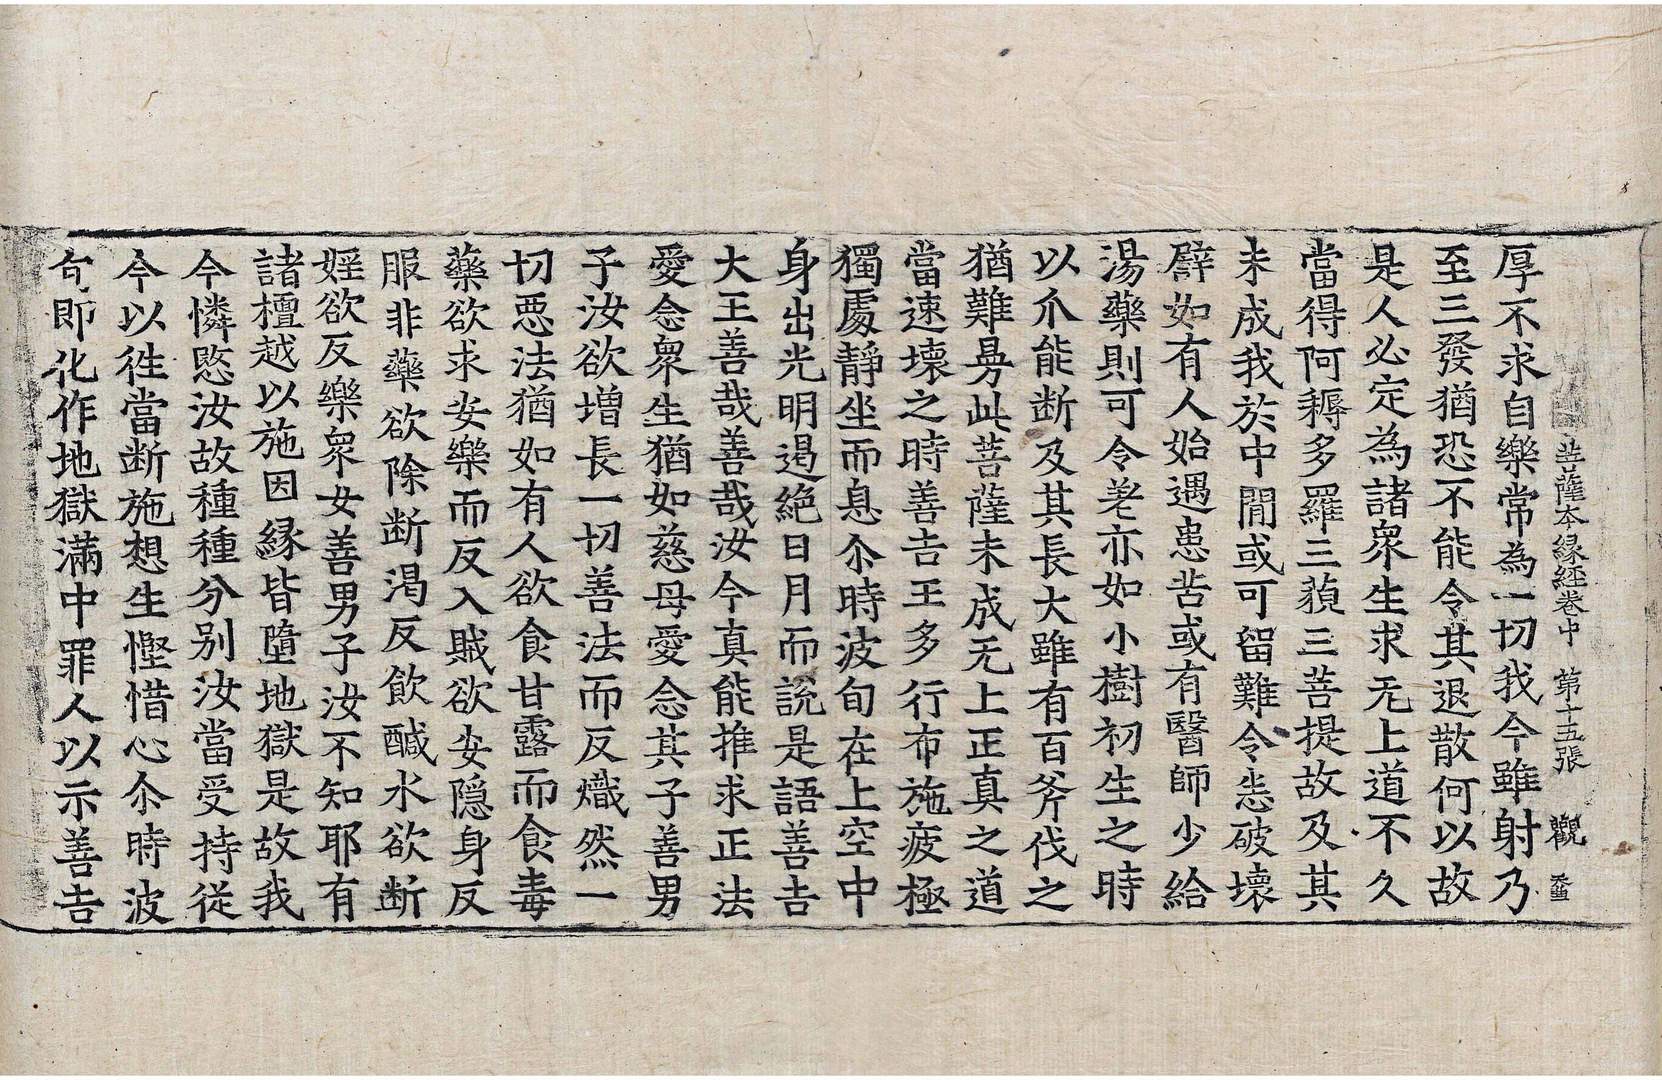 菩薩本緣經卷中　第十五張　觀
厚不求自樂常為一切我今雖射乃
至三發猶恐不能令其退散何以故
是人必定為諸衆生求无上道不久
當得阿耨多羅三藐三菩提故及其
未成我於中閒或可留難令恙破壞
譬如有人始遇患苦或有醫師少給
湯藥則可令差亦如小樹初生之時
以爪能断及其長大雖有百斧伐之
猶難是故此菩薩未成无上正真之道
當速壞之時善吉王多行布施疲極
獨處静坐而息尒時波旬在上空中
身出光明遏絶日月而說是語善吉
大王善哉善哉汝今真能推求正法
愛念衆生猶如慈母愛念其子善男
子汝欲增長一切善法而反熾然一
切惡法猶如有人欲食甘露而食毒
藥欲求安樂而反入賊欲安隱身反
服非藥欲除断渴反飲醎水欲断
婬欲反樂衆女善男子汝不知耶有
諸檀越以施因緣皆墮地獄是故我
今憐愍汝故種種分别汝當受持從
今以徃當断施想生慳惜心尒時波
旬即化作地獄滿中罪人以示善吉